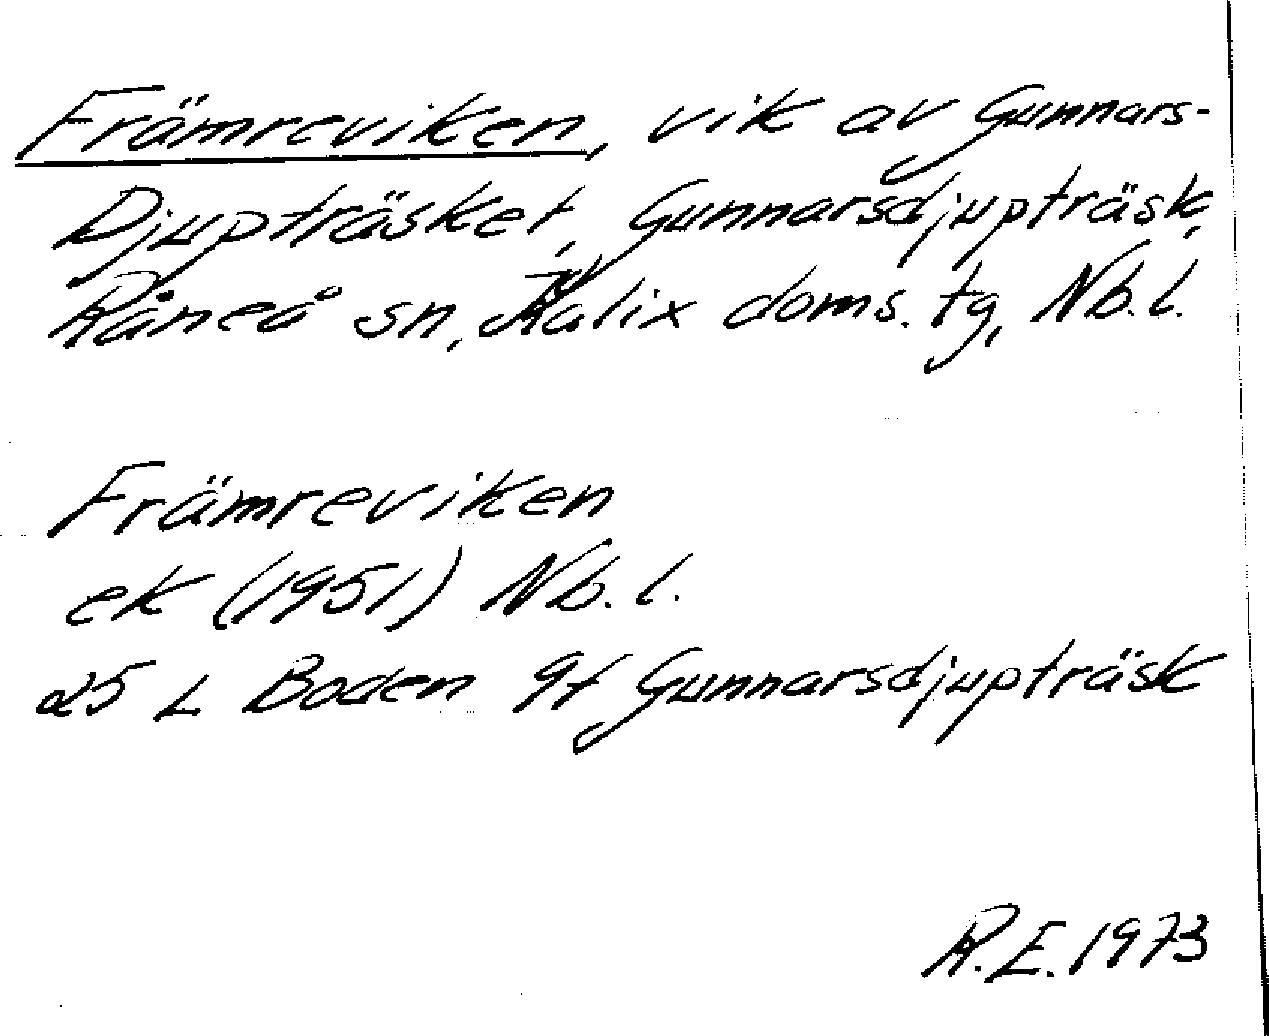 Främreviken, vik av Gunnars-
Djupträsket, Gunnarsdjupträsk,
Råneå sn, Kalix doms. tg, Nb. l.
Främreviken
ek (1951) Nb. l.
25 L Boden 9f Gunnarsdjupträsk
R.E. 1973